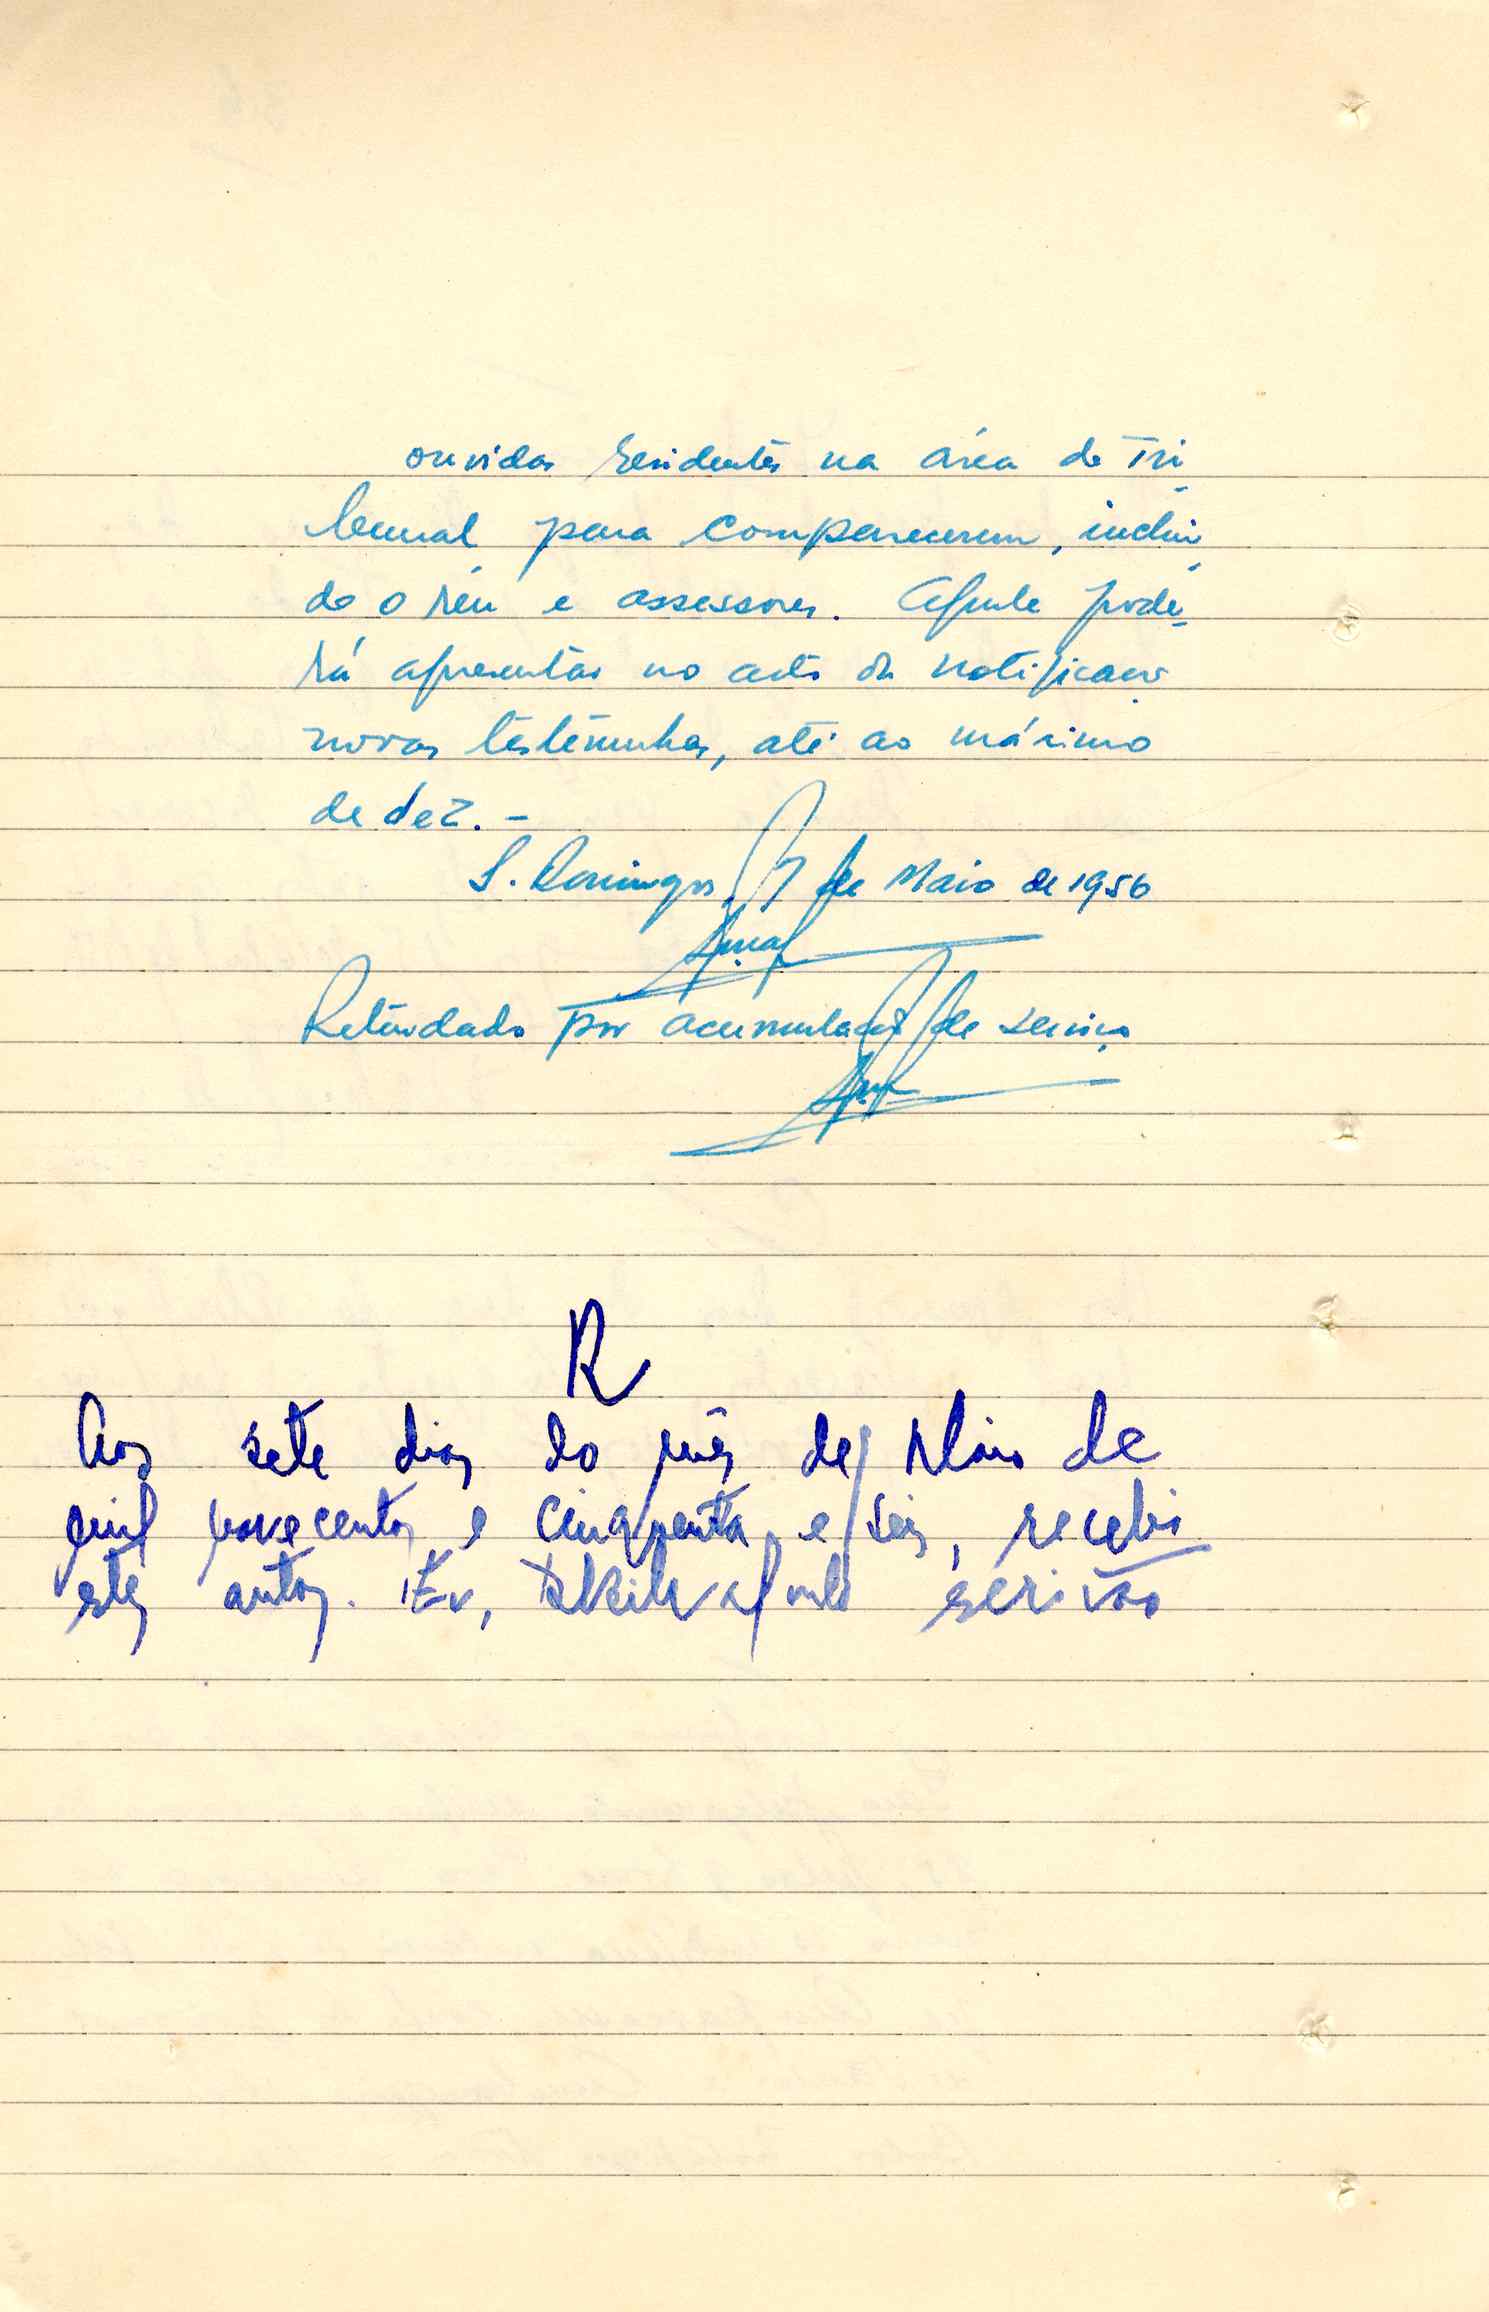 ouvidas residentes na área do Tri
bunal para comparecerem, inclui
do o réu e assessores. Aquele pode-
rá apresentar no acto da notificação
novas testemunhas, até ao máximo
de dez. -
S. Domingos, 7 de Maio de 1956
Retardado por acumulação de serviço
R
Aos sete dias do mês de Maio de
mil novecentos e cinquenta e seis, recebi
estes autos. Eu, escrivão